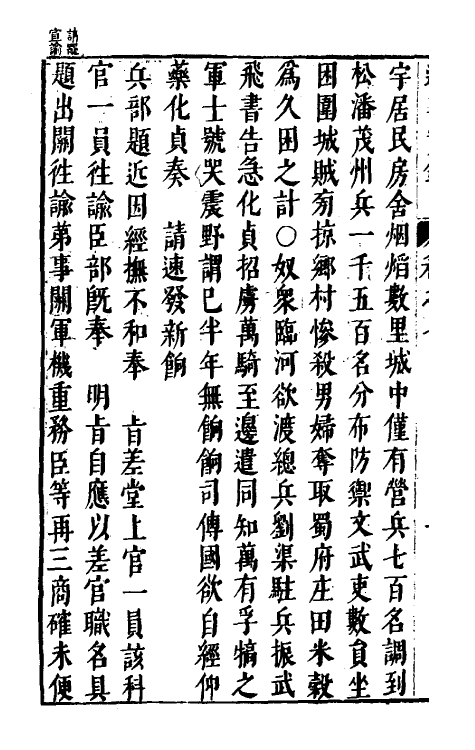 宇居民房舍烟熖數里城中僅有營兵七百名調到
松潘茂州兵一千五百名分布防禦文武吏數員坐
困圍城賊夯掠鄉村慘殺男婦奪取蜀府庄田米穀
爲久困之計〇奴衆臨河欲渡總兵劉渠駐兵振武
飛書告急化貞招虜萬騎至邊遣同知萬有孚犒之
軍士號哭震野謂已半年無餉餉司傅國欲自經仰
藥化貞奏　請速發新餉
兵部題近因經撫不和奉　旨差堂上官一員該科
官一員徃諭臣部旣奉　明旨自應以差官職名具
題出關徃諭苐事關軍機重務臣等再三商確未便
請罷
宣諭